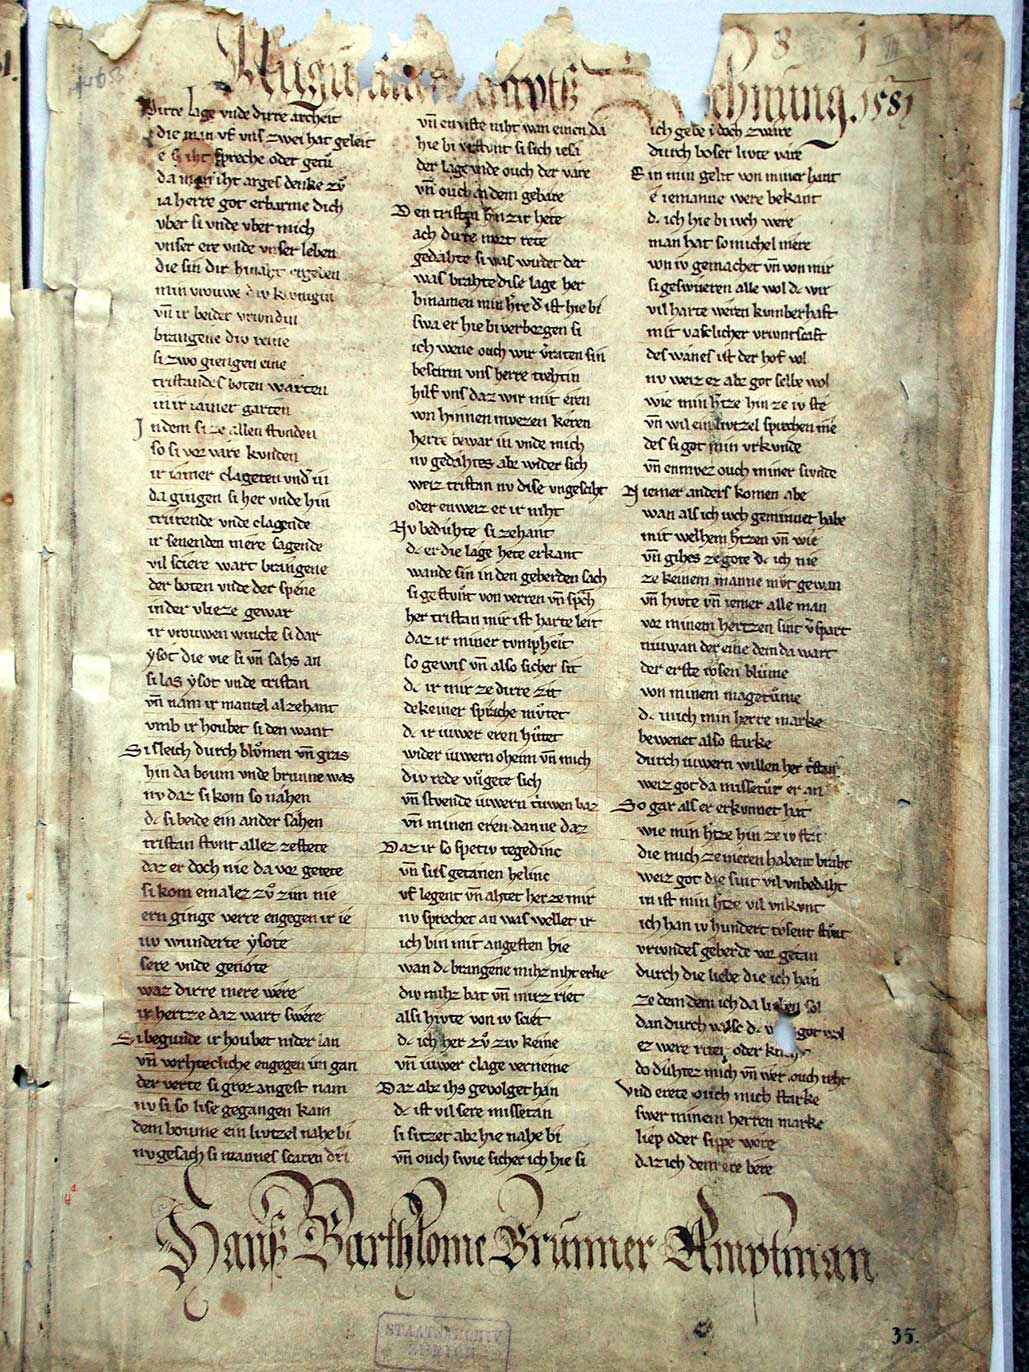 1581.
Dirre lage vnde dirre archeit
die man vf vns zwei hat geleit
spreche oder getuͦ
da man iht arges denke zuͦ
ia herre got erbarme dich
vber si vnde vber mich
vnser ere vnde vnser leben
die sin dir hinaht ergeben
min vrouwe div kvnigin
vn̄ ir beider vriundin
brangene div reine
si zwo giengen eine
tristandes boten warten
in ir garten
In dem si ze allen stvnden
so si vor vare kvnden
ir iamer clageten vnd
da gingen si her vnde hin
trurende vnde clagende
ir senenden mere sagende
vil sciere wart brangene
der boten vnde der spene
in der vlieze gewar
ir vrouwen wincte si dar
ysot die vie si vn̄ sahs an
si las ysot vnde tristan
vn̄ nam ir mantel al zehant
vmb ir houbet si den want
Si sleich durch bluͦmen vn̄ gras
hin da boum vnde brunne was
nv daz si kom so nahen
dc si beide ein ander sahen
tristan stvnt allez zestete
daz er doch nie da vor getete
si kom emalez zuͦ zim nie
ern ginge verre engegen ir ie
nv wunderte ysote
sere vnde genote
waz dirre mere were
ir hertze daz wart swere
Si begunde ir houbet nider lan
vn̄ vorhtecliche engegen im gan
der verte si groz angest nam
nv si so lise gegangen kam
dem boume ein lvtzel nahe bi
nv gesach si mannes scaten dri
vn̄ en viste niht wan einen da
hie bi verstvnt si sich iesa
der lage vnde ouch der vare
vn̄ ouch an dem gebare
Den tristan hin zir hete
ach dirre mort rete
gedahte si was wirdet der
was brahte dise lage her
binamen min h're dc ist hie bi
swa er hie bi verborgen si
ich wene ouch wir v'raten sin
bescirm vns herre trehtin
hilf vns daz wir mit eren
von hinnen mvezen keren
herre bewar in vnde mich
nv gedahtes abe wider sich
weiz tristan nv dise vngesciht
oder enweiz er ir niht
Nv beduhte si zehant
dc er die lage hete erkant
wande sin in den geberden sach
si gestvnt von verren vn̄ sprach
her tristan mir ist harte leit
daz ir miner tvmpheit
so gewis vn̄ also sicher sit
dc ir mir ze dirre zit
dekeiner sprache mvtet
dc ir iuwer eren huͦtet
wider iuwern oheim vn̄ mich
div rede vuͦgete sich
vn̄ stvende iuwern triwen baz
vn̄ minen eren danne daz
Daz ir so spetiv tegedinc
vn̄ sus getanen helinc
vf legent vn̄ ahtet her ze mir
nv sprechet an was wellet ir
ich bin mit angesten hie
wan dc brangene mihz niht erlie
div mihz bat vn̄ mirz riet
alsi hivte von iv sciet
dc ich her zuͦ ziv keme
vn̄ iuwer clage verneme
Daz abe ihs gevolget han
dc ist vil sere missetan
si sitzet abe hie nahe bi
vn̄ ouch swie sicher ich hie si
ich gebe doch zware
durch boser livte vare
Ein min gelit von miner hant
e iemanne were bekant
dc ich hie bi ivch were
man hat so michel mere
von iv gemachet vn̄ von mir
si geswueren alle wol dc wir
vil harte weren kvmberhaft
mit valslicher vrivntscaft
des wanes ist der hof vol
nv weiz ez abe got selbe wol
wie min h'tze hin ze iv ste
vn̄ wil ein lvtzel sprechen me
des si got min vrkvnde
vn̄ enmvez ouch miner svnde
Niemer anders komen abe
wan als ich ivch geminnet habe
mit welhem h'tzen vn̄ wie
vn̄ gihes ze gote dc ich nie
ze keinem manne mvt gewan
vn̄ hivte vn̄ iemer alle man
vor minem hertzen sint v'spart
niuwan der eine dem da wart
der erste rosen bluͦme
von minem magetuͦme
dc mich min herre marke
bewenet also starke
durch iuwern willen her tristan
weiz got da missetuͦt er an
So gar als er erkvnnet hat
wie min h'tze hin ze iv stat
die mich ze meren habent braht
weiz got die sint vil vnbedaht
in ist min h'tze vil vnkvnt
ich han iv hundert tvsent stvnt
vrivndes geberde vor getan
durch die liebe die ich han
ze dem dem ich da lieben sol
dan durch valsc dc weiz got wol
ez were ritter oder kneht
do duhtez mich vn̄ wer ouch reht
Vnd erete ouch mich starke
swer minem herren marke
liep oder sippe were
daz ich dem ere bere
Hanß Barthlome Brunner Amptman
STAATSARCHIV
ZÜRICH
35.